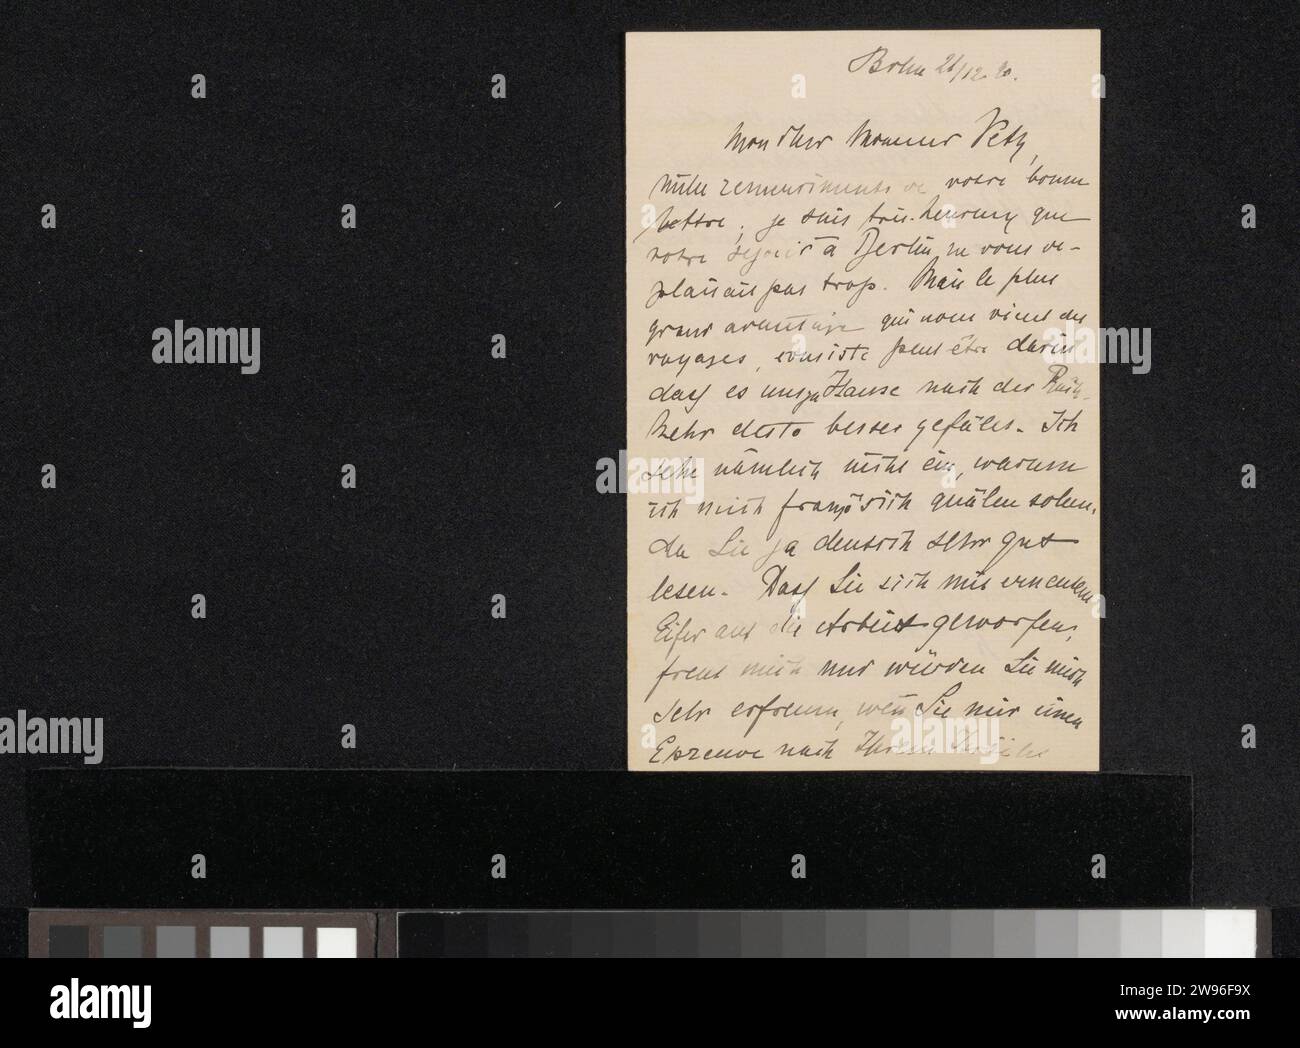 Berlin 21/12.
Mon cher Monsieur Veth,
Mille remerciments de votre bonne
lettre, je suis très-heureux que
votre séjour à Berlin ne vous dé-
plaisait pas trop. Mais le plus
grand avantage qui nous vient des
voyages, consiste peut être darin
dass es uns zu Hause nach der Rück-
kehr desto besser gefällt. Ich
sehe nämlich nicht ein, warum
ich mich französisch quälen soll,
da Sie ja deutsch sehr gut
lesen. Dass Sie sich mit erneutem
Eifer auf die Arbeit geworfen,
freut mich und würden Sie mich
sehr erfreuen, wenn Sie mir einen
Epreuve nach Ihrem
alamy
Image ID: 2W96F9X
www.alamy.com